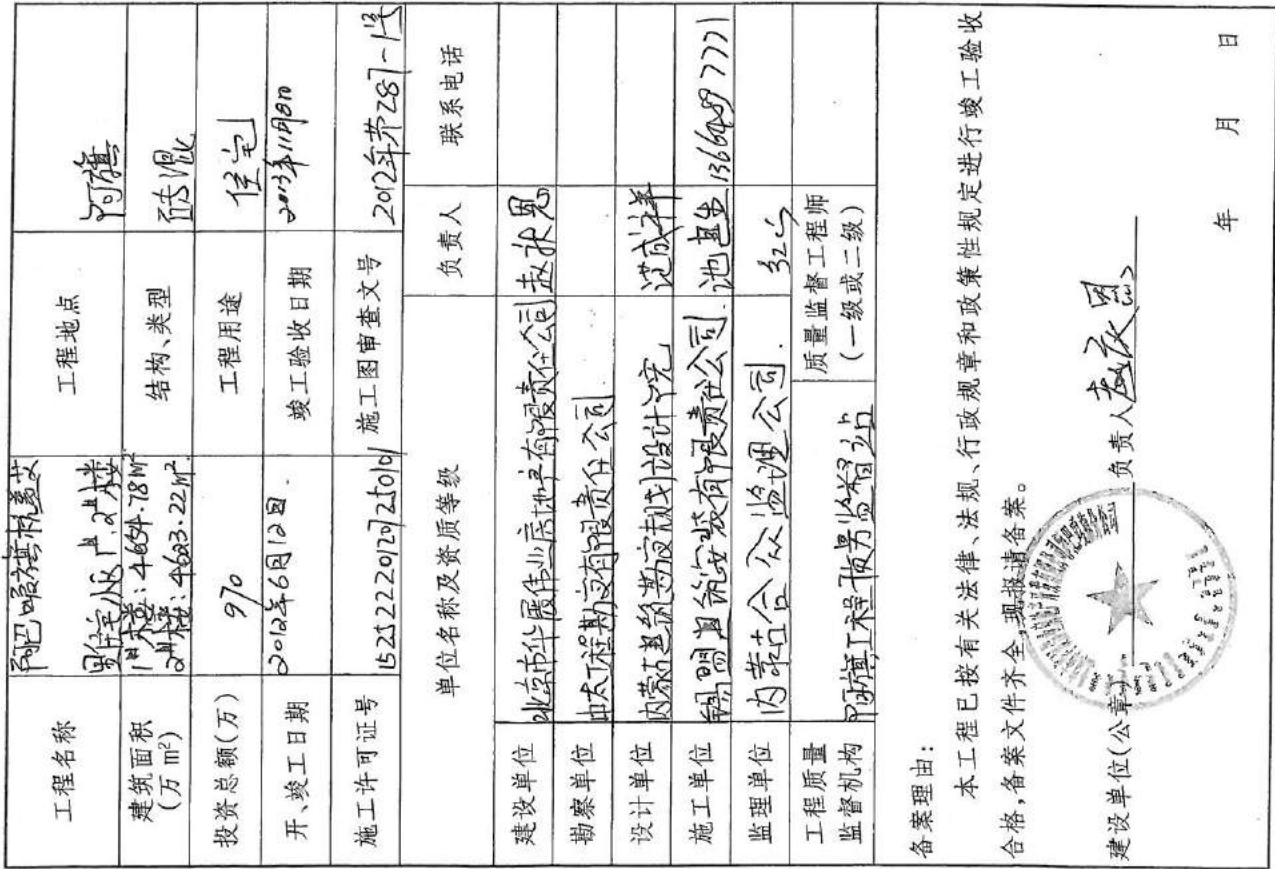 工程名称 阿巴嘎旗 工程地点 阿旗
小区1#、2#楼
建筑面积 1#楼:4654.78m² 结构、类型 砖混
(万m²) 2#楼:4603.22m²
投资总额(万) 970 工程用途 住宅
开、竣工日期 2012年6月12日. 竣工验收日期 2013年11月8日
施工许可证号 152522201207250101 施工图审查文号 2012年芥287-1号
单位名称及资质等级 负责人 联系电话
建设单位 北京市华厦伟业房地产有限责任公司
勘察单位 中太工程勘察有限责任公司
设计单位 内蒙古建筑勘察规划设计院 范成祥
施工单位 锡盟建筑安装有限责任公司. 13664897771
监理单位 内蒙古合众监理公司.
工程质量 阿旗工程质量监督站 质量监督工程师
监督机构 (一级或二级)
备案理由:
本工程已按有关法律、法规、行政规章和政策性规定进行竣工验收
合格,备案文件齐全,现报请备案。
建设单位(公章) 负责人
年 月 日